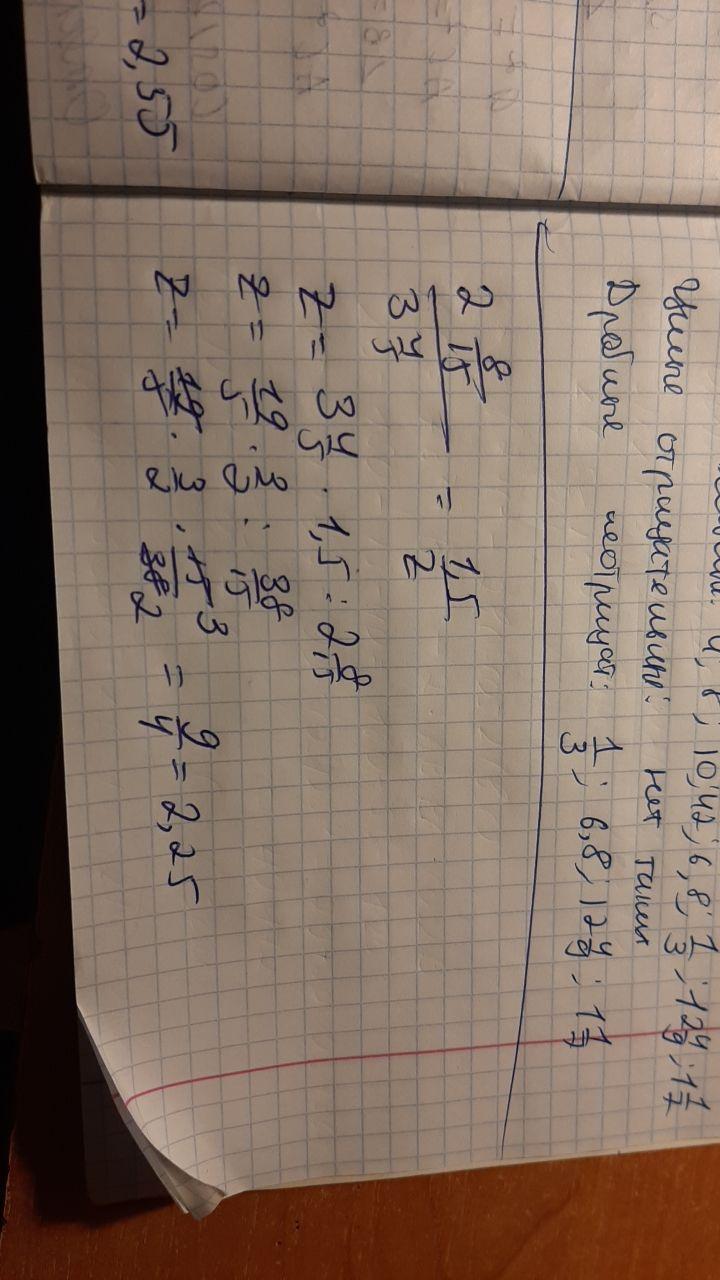 4; 8; 10; 42; 6,8; 1/3; 12 4/9; 1 1/7
Целые отрицательные: нет таких
Дробные неотрицат: 1/3; 6,8; 12 4/9; 1 1/7
2 8/15 / 3 4/5 = 1,5/z
z = 3 4/5 · 1,5 : 2 8/15
z = 19/5 · 3/2 : 38/15
z = 19/5 · 3/2 · 15 3/38 2 = 9/4 = 2,25
= 2,55